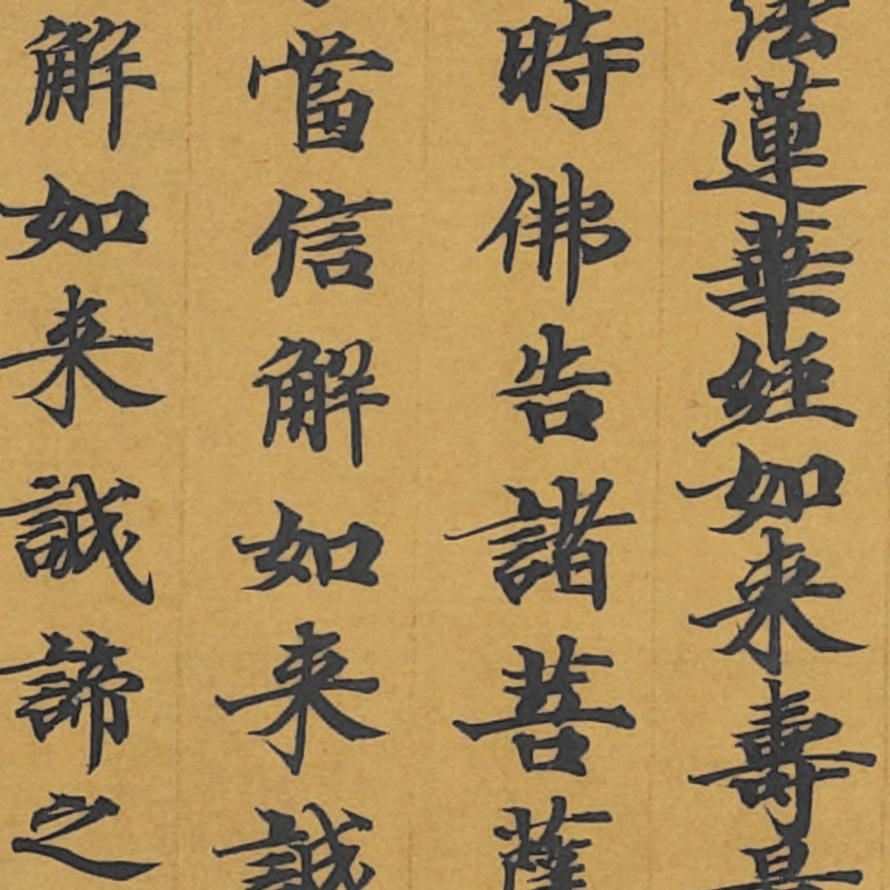 法蓮華經如来壽量
時佛告諸菩薩
當信解如来誠
解如来誠諦之